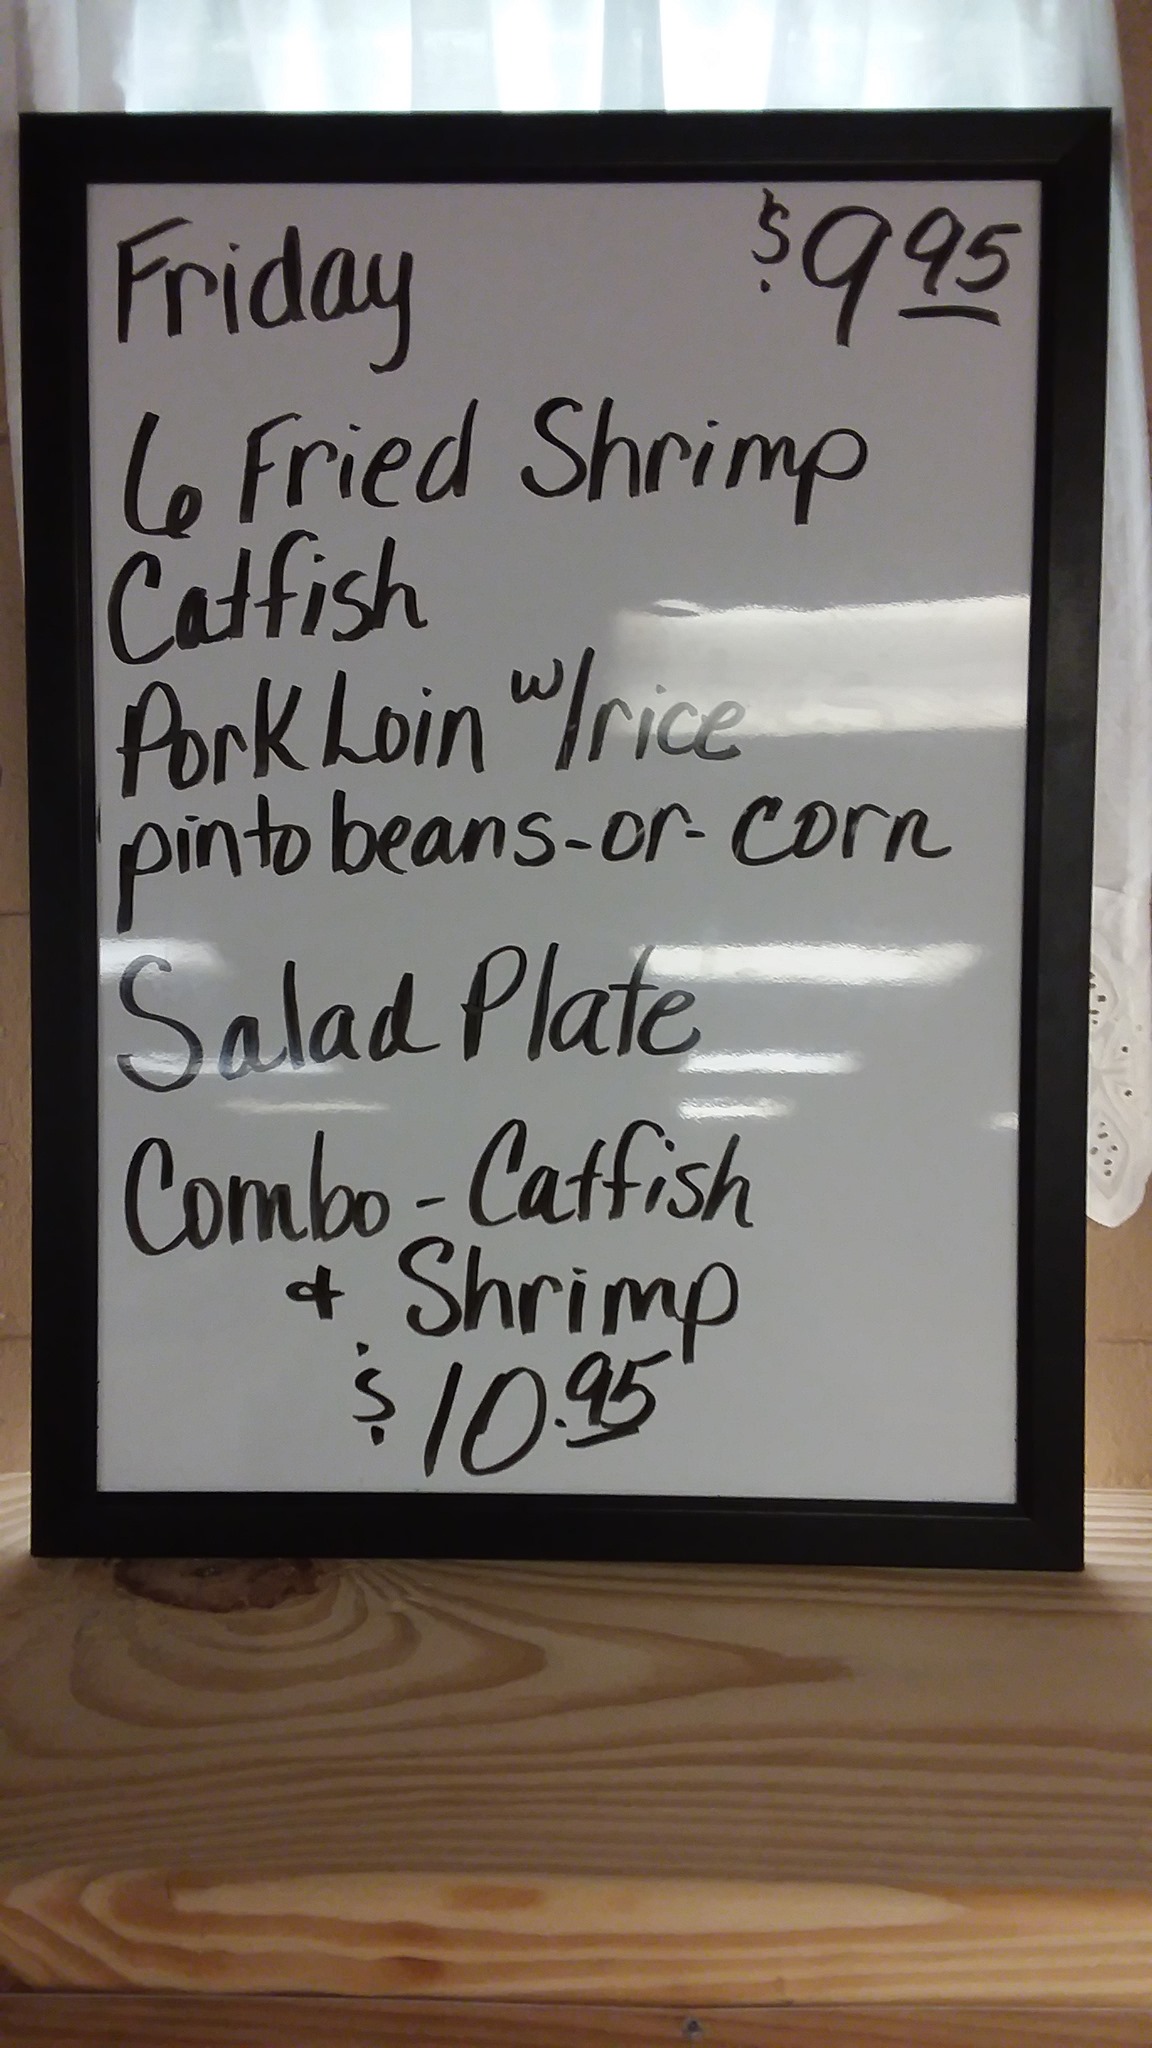 Friday $9.95
6 Fried Shrimp
Catfish
Pork Loin w/rice
pinto beans-or-corn
Salad Plate
Combo - Catfish
& Shrimp
$10.95